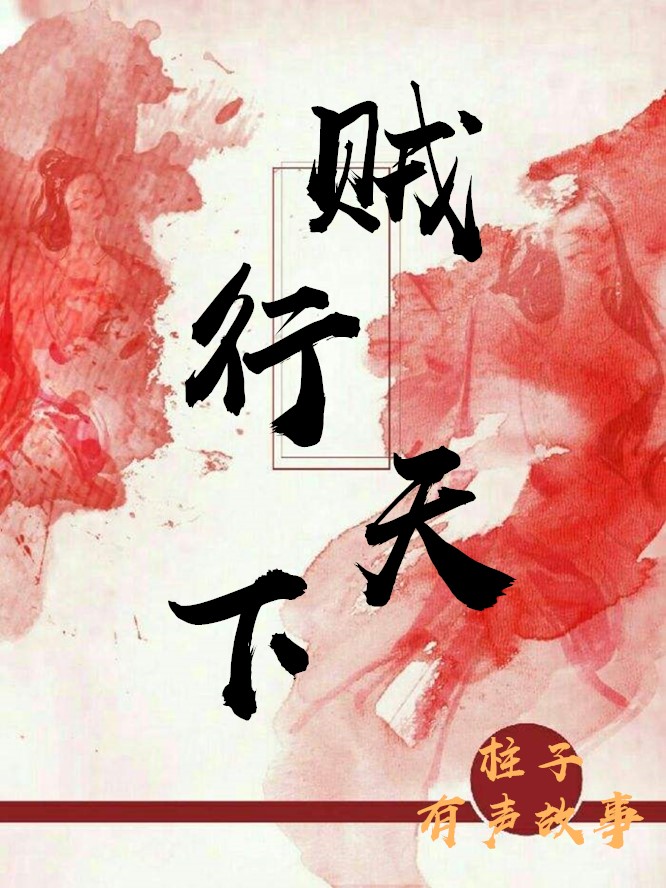 贼行天下
柱子
有声故事